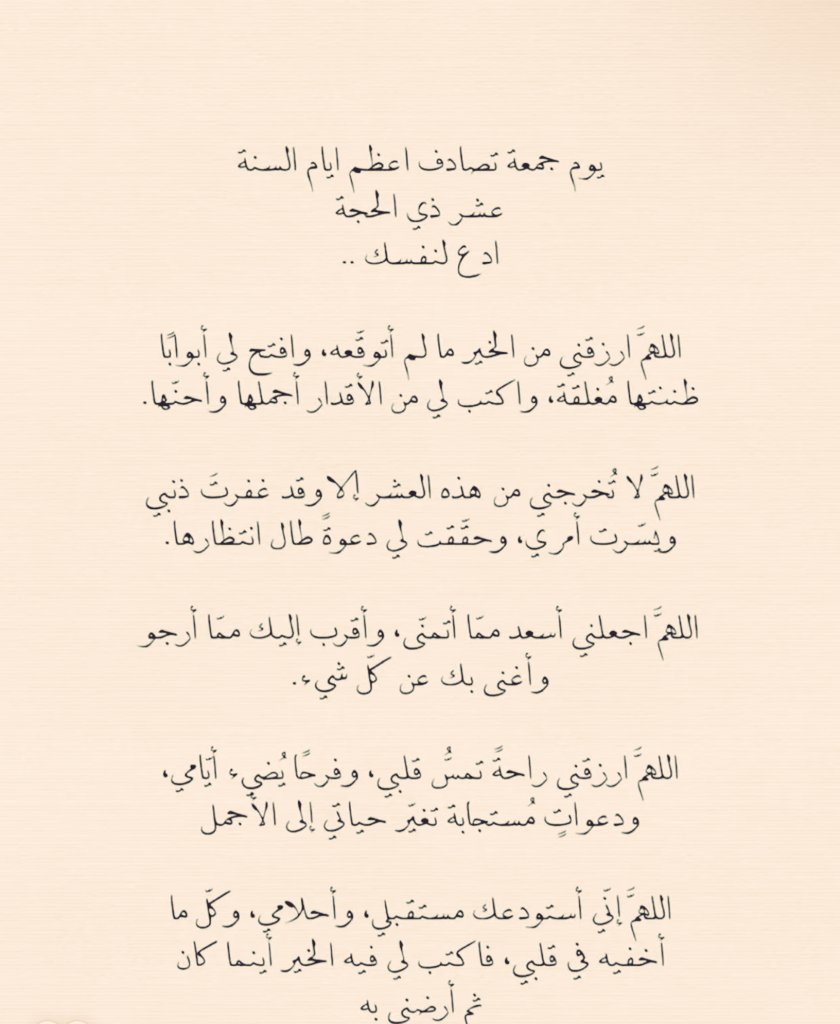 يوم جمعة تصادف اعظم ايام السنة
عشر ذي الحجة
ادع لنفسك ..
اللهمَّ ارزقني من الخير ما لم أتوقَّعه، وافتح لي أبوابًا
ظننتها مُغلقة، واكتب لي من الأقدار أجملها وأحنّها.
اللهمَّ لا تُخرجني من هذه العشر إلا وقد غفرتَ ذنبي
ويسّرت أمري، وحقَّقت لي دعوةً طال انتظارها.
اللهمَّ اجعلني أسعد ممّا أتمنّى، وأقرب إليك ممّا أرجو
وأغنى بك عن كلّ شيء.
اللهمَّ ارزقني راحةً تمسُّ قلبي، وفرحًا يُضيء أيّامي،
ودعواتٍ مُستجابة تغيّر حياتي إلى الأجمل
اللهمَّ إنّي أستودعك مستقبلي، وأحلامي، وكلّ ما
أخفيه في قلبي، فاكتب لي فيه الخير أينما كان
ثم أرضني به